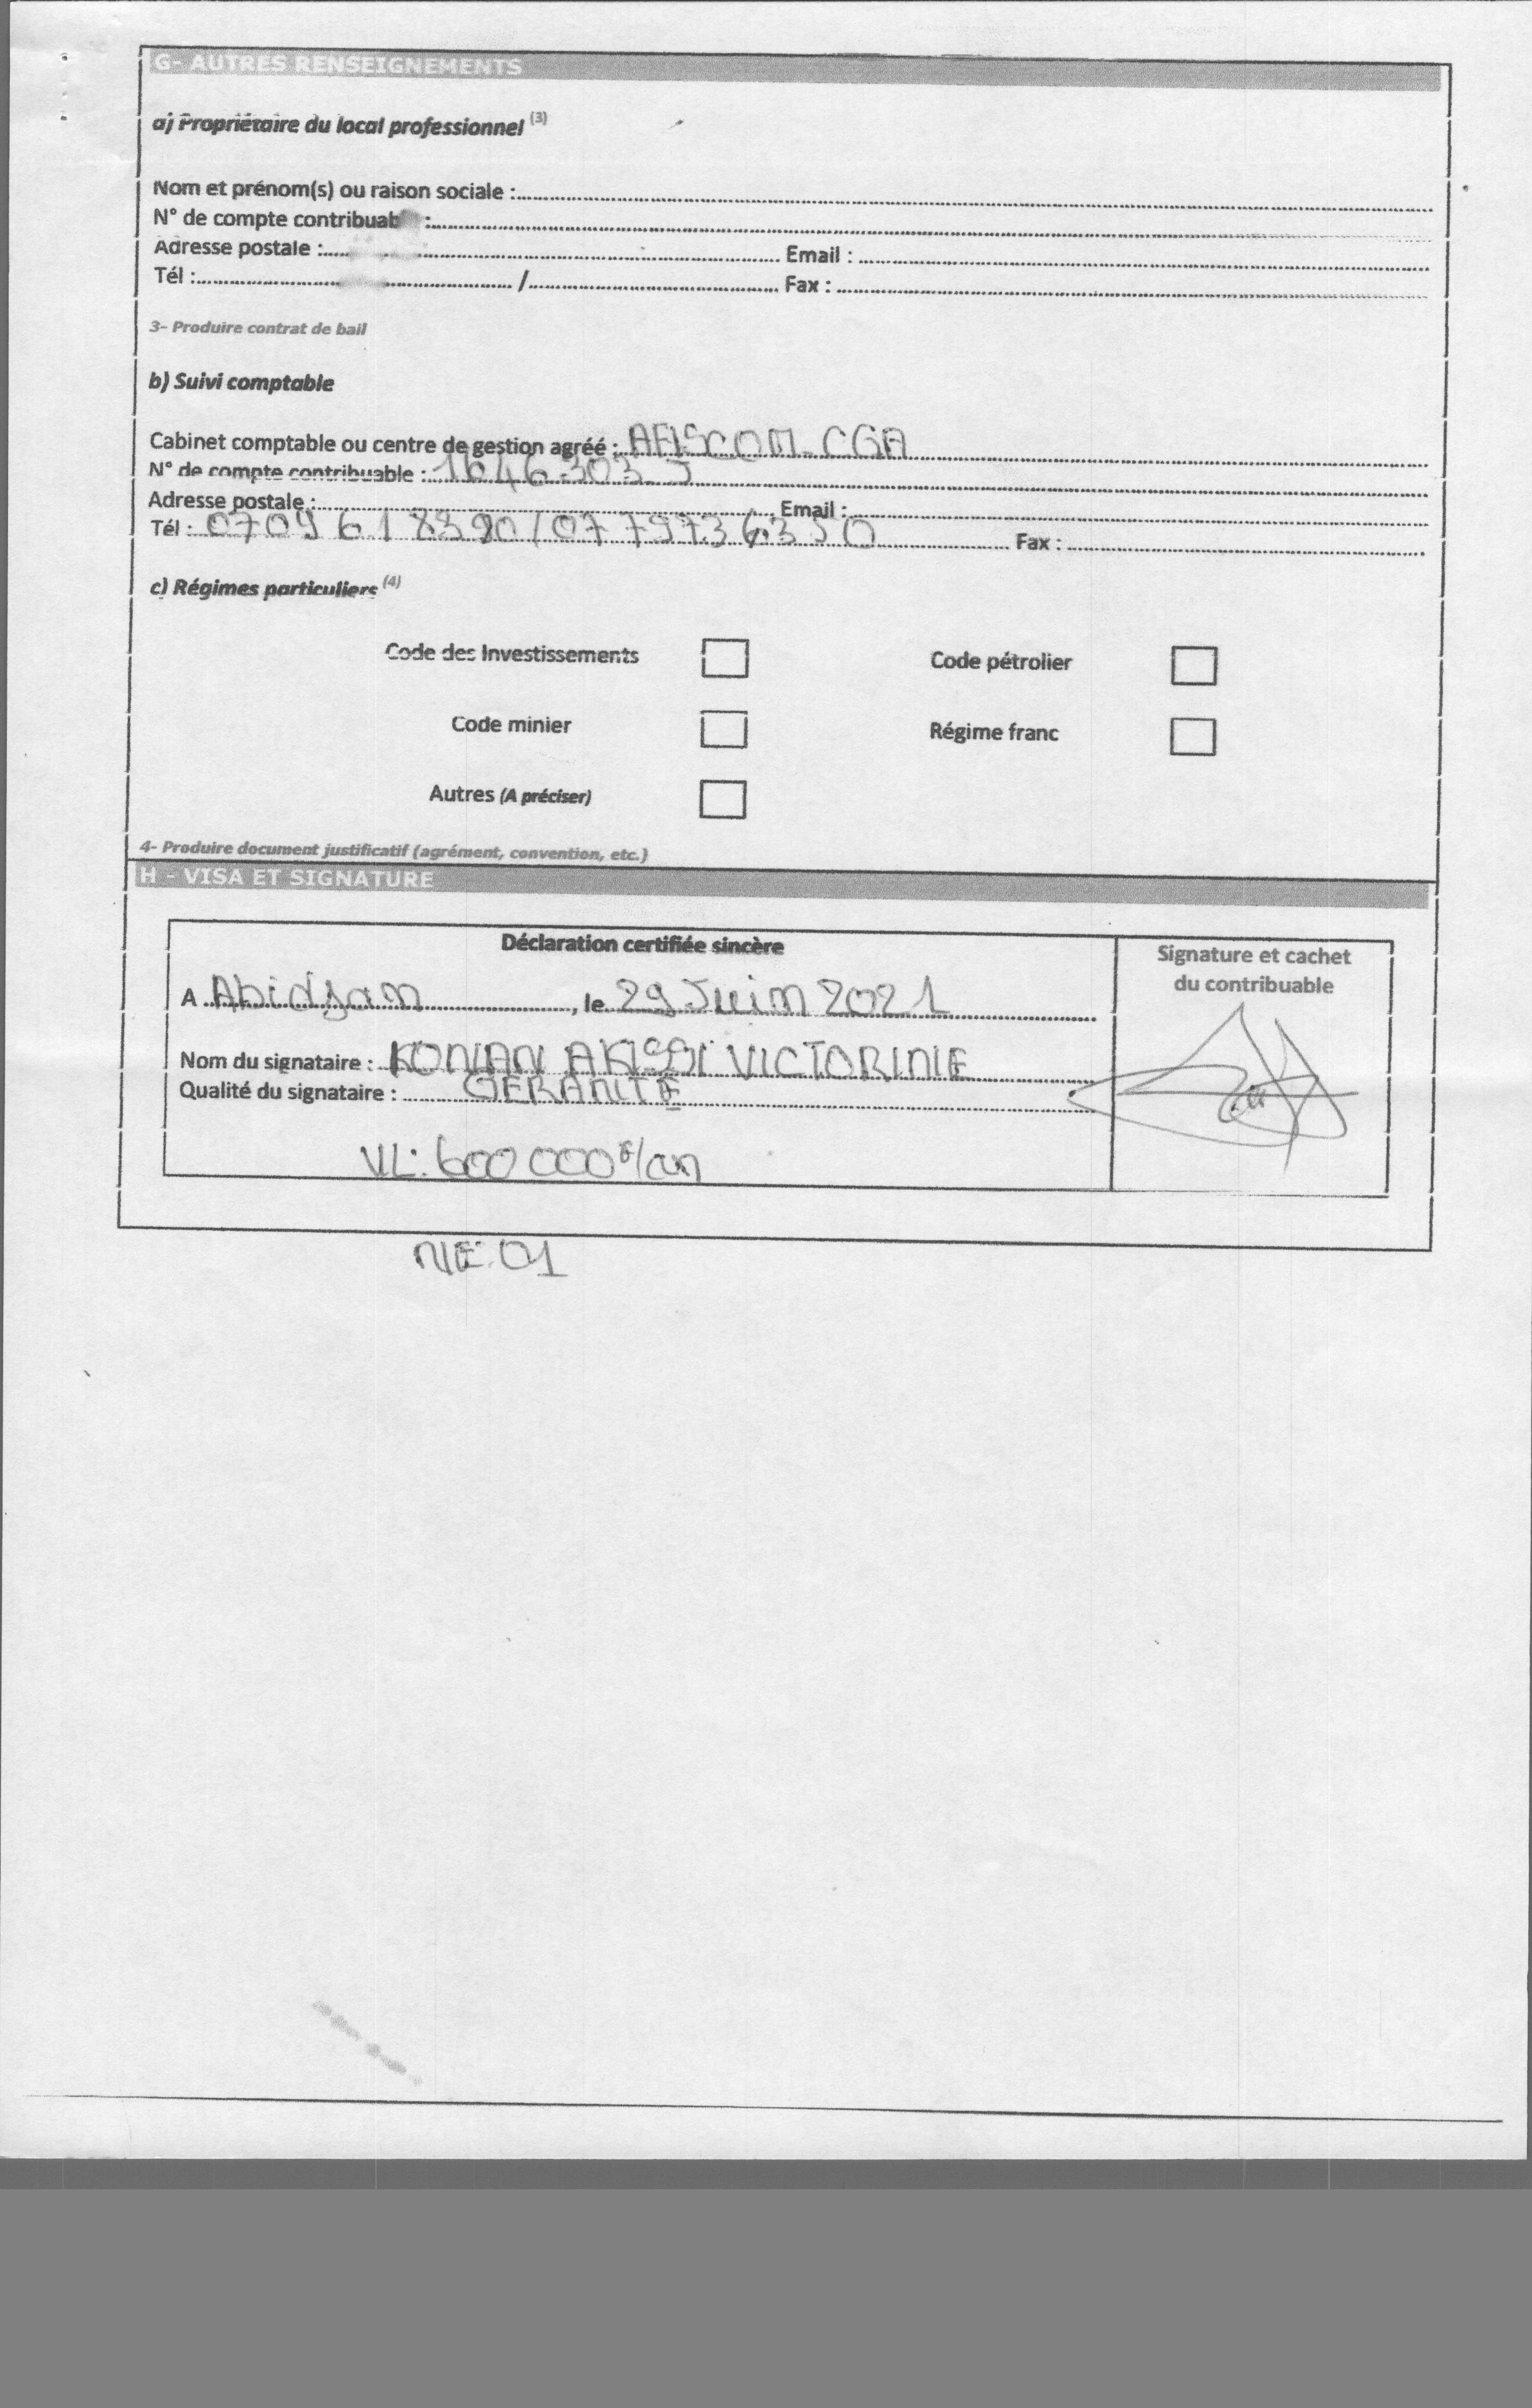 G- AUTRES RENSEIGNEMENTS
a) Propriétaire du local professionnel (3)
Nom et prénom(s) ou raison sociale :
N° de compte contribuab :
Adresse postale : Email :
Tél : / Fax :
3- Produire contrat de bail
b) Suivi comptable
Cabinet comptable ou centre de gestion agréé : CGA
N° de compte contribuable : 1646303 J
Adresse postale : Email :
Tél : 0709618390/0779736350 Fax :
c) Régimes particuliers (4)
Code des Investissements Code pétrolier
Code minier Régime franc
Autres (A préciser)
4- Produire document justificatif (agrément, convention, etc.)
H - VISA ET SIGNATURE
Déclaration certifiée sincère
Signature et cachet
du contribuable
A Abidjan, le 29 Juin 2021
Nom du signataire : KONAN AKISSI VICTORINE
Qualité du signataire : GERANTE
VL: 600 000 F/an
NE: 01